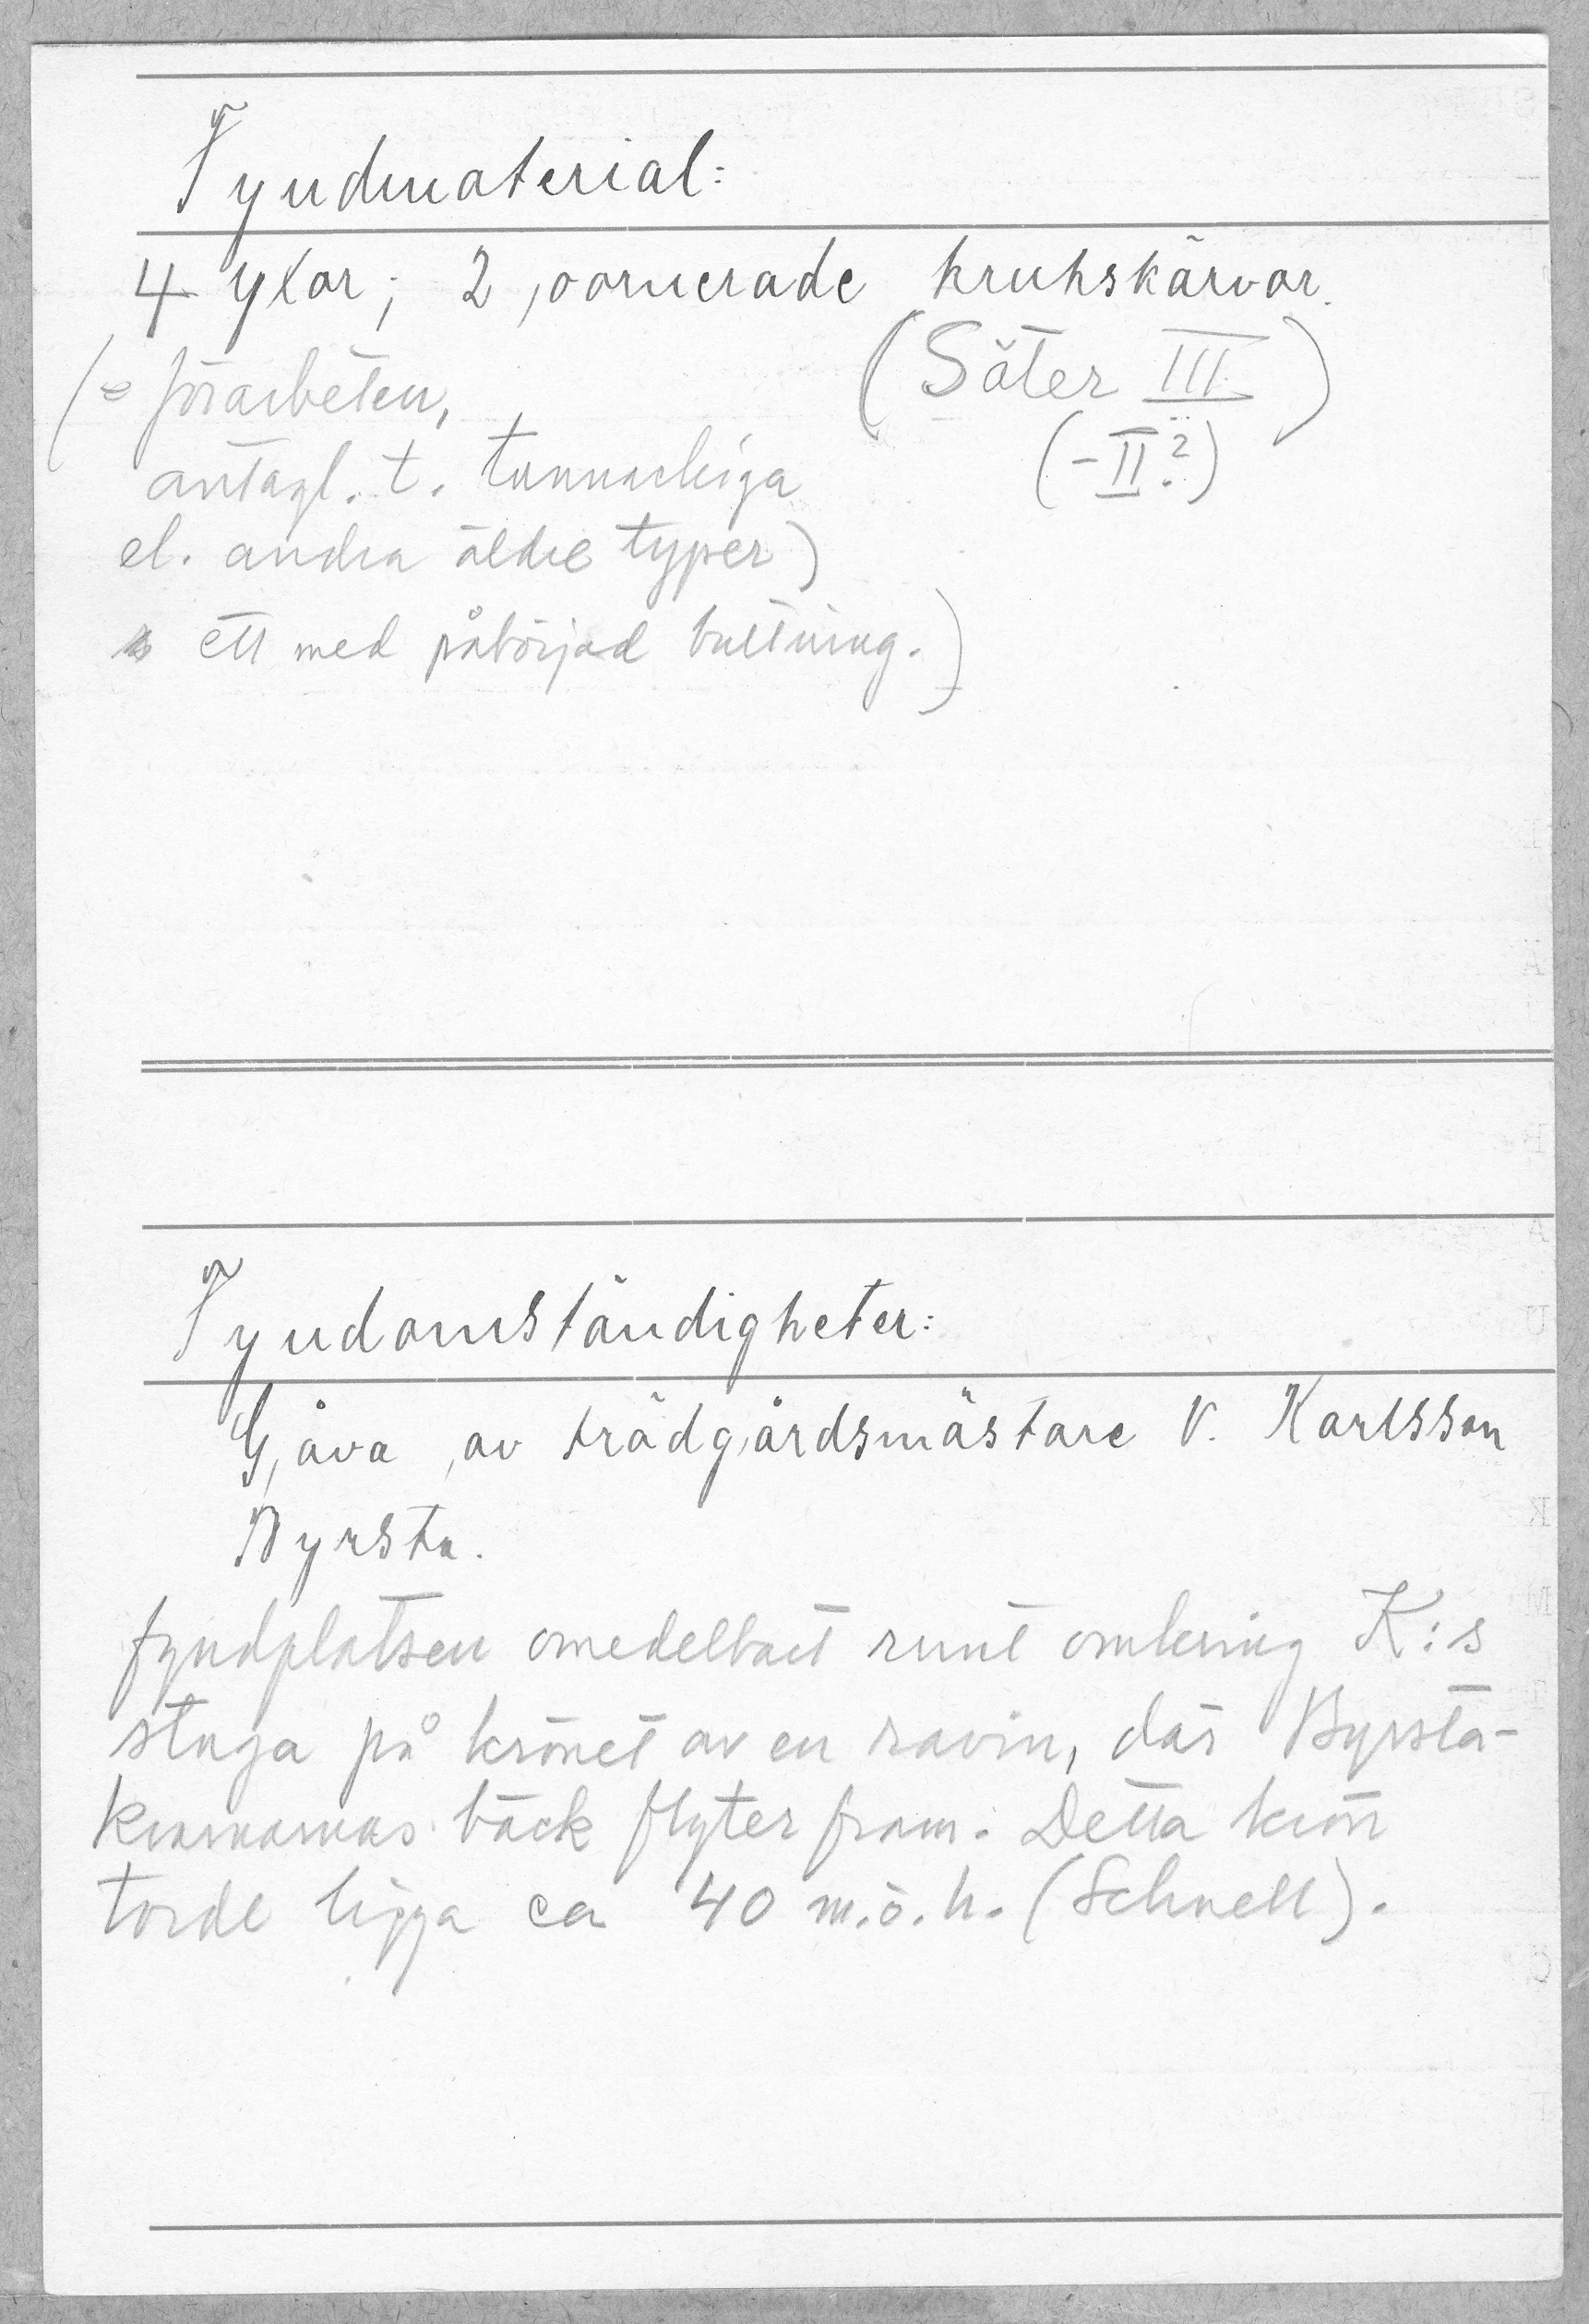 Fyndmaterial:
4 yxor; 2 oornerade krukskärvor.
(= förarbeten,
(Säter III)
antagl. t. tunnackiga
(-II?)
el. andra äldre typer)
ett med påbörjad bultning.)
Fyndomständigheter:
Gåva av trädgårdsmästare V. Karlsson
Byrsta.
fyndplatsen omedelbart runt omkring K:s
stuga på krönet av en ravin, där Byrsta-
kvarnarnas bäck flyter fram. Detta krön
torde ligga ca 40 m.ö.h. (Schnell).